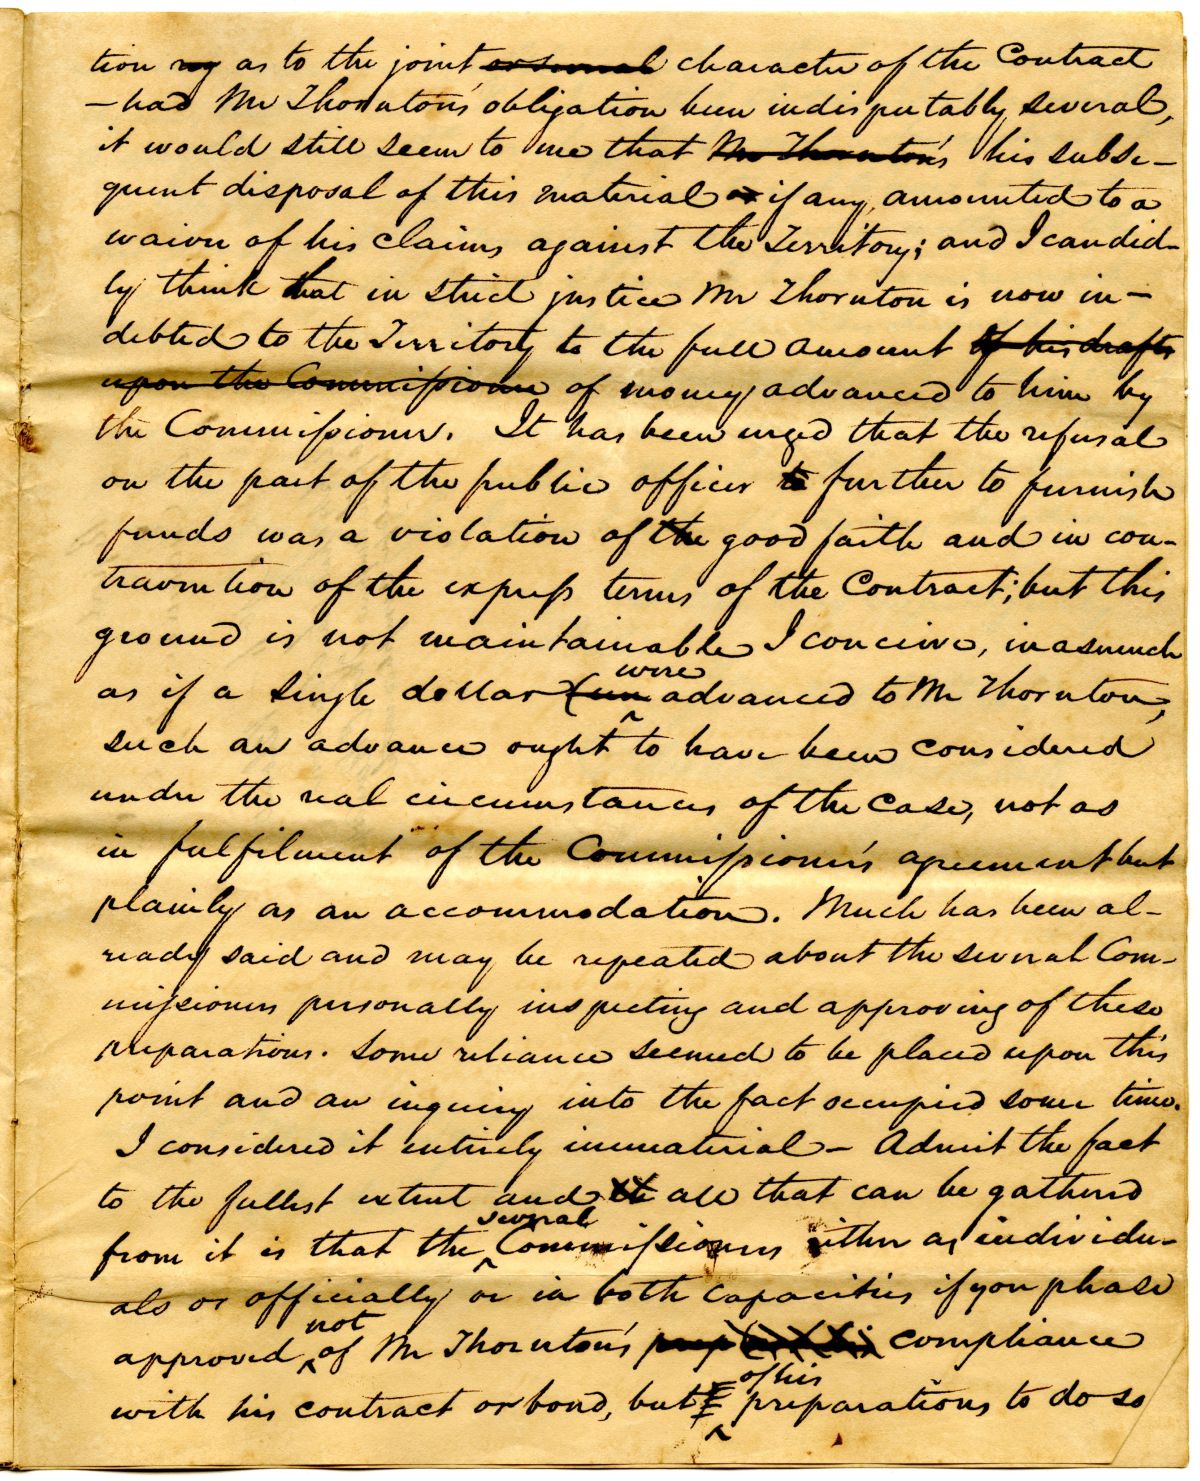 tion as to the joint or several character of the Contract
— had Mr Thornton's obligation been indisputably several,
it would still seem to me that Mr Thornton's his subse-
quent disposal of this material if any, amounted to a
waiver of his claims against the Territory; and I candid-
ly think that in strict justice Mr Thornton is now in-
debted to the Territory to the full amount of his drafts
upon the Commissioner of money advanced to him by
the Commissioner. It has been urged that the refusal
on the part of the public officer to further to furnish
funds was a violation of the good faith and in con-
travention of the express terms of the Contract; but this
ground is not maintainable I conceive, inasmuch
as if a single dollar were advanced to Mr Thornton,
such an advance ought to have been considered
under the real circumstances of the case, not as
in fulfilment of the Commissioner's agreement but
plainly as an accommodation. Much has been al-
ready said and may be repeated about the several Com-
missioners personally inspecting and approving of these
preparations. Some reliance seemed to be placed upon this
point and an inquiry into the fact occupied some time.
I considered it entirely immaterial — Admit the fact
to the fullest extent and all that can be gathered
from it is that the several Commissioners either as individu-
als or officially or in both capacities if you please
approved not of Mr Thornton's prep compliance
with his contract or bond, but of his preparations to do so